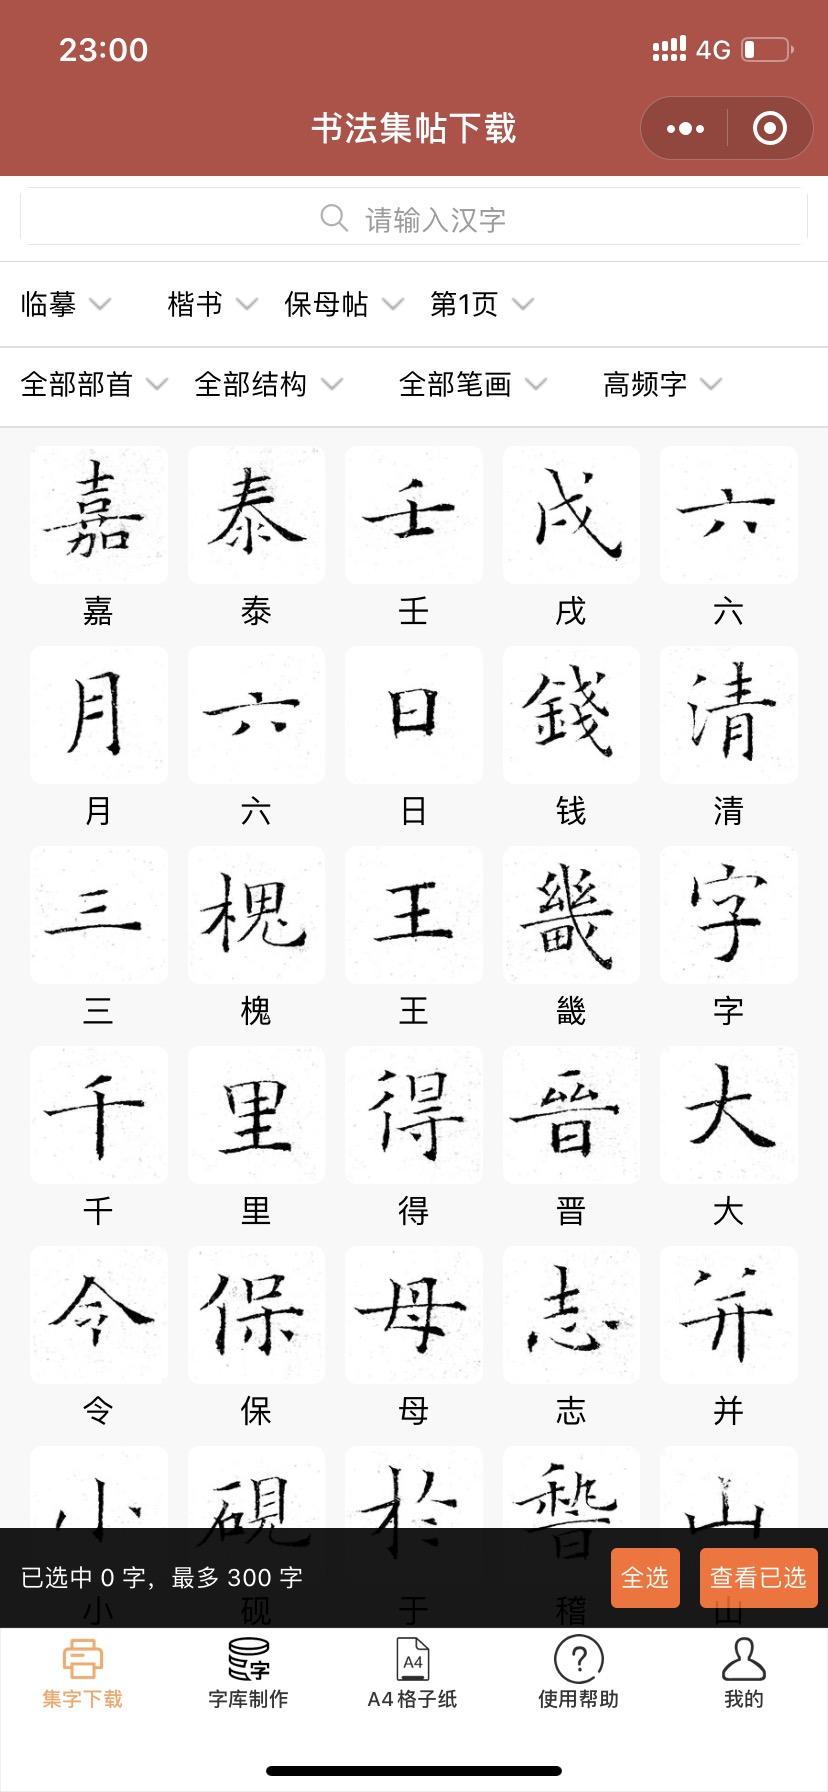 23:00 4G
书法集帖下载
请输入汉字
临摹 楷书 保母帖 第1页
全部部首 全部结构 全部笔画 高频字
嘉 泰 壬 戌 六
嘉 泰 壬 戌 六
月 六 日 錢 清
月 六 日 钱 清
三 槐 王 畿 字
三 槐 王 畿 字
千 里 得 晉 大
千 里 得 晋 大
令 保 母 志 并
令 保 母 志 并
小 硯 於 稽 山
已选中 0 字，最多 300 字 全选 查看已选
小 砚 于 稽 山
集字下载 字库制作 A4格子纸 使用帮助 我的